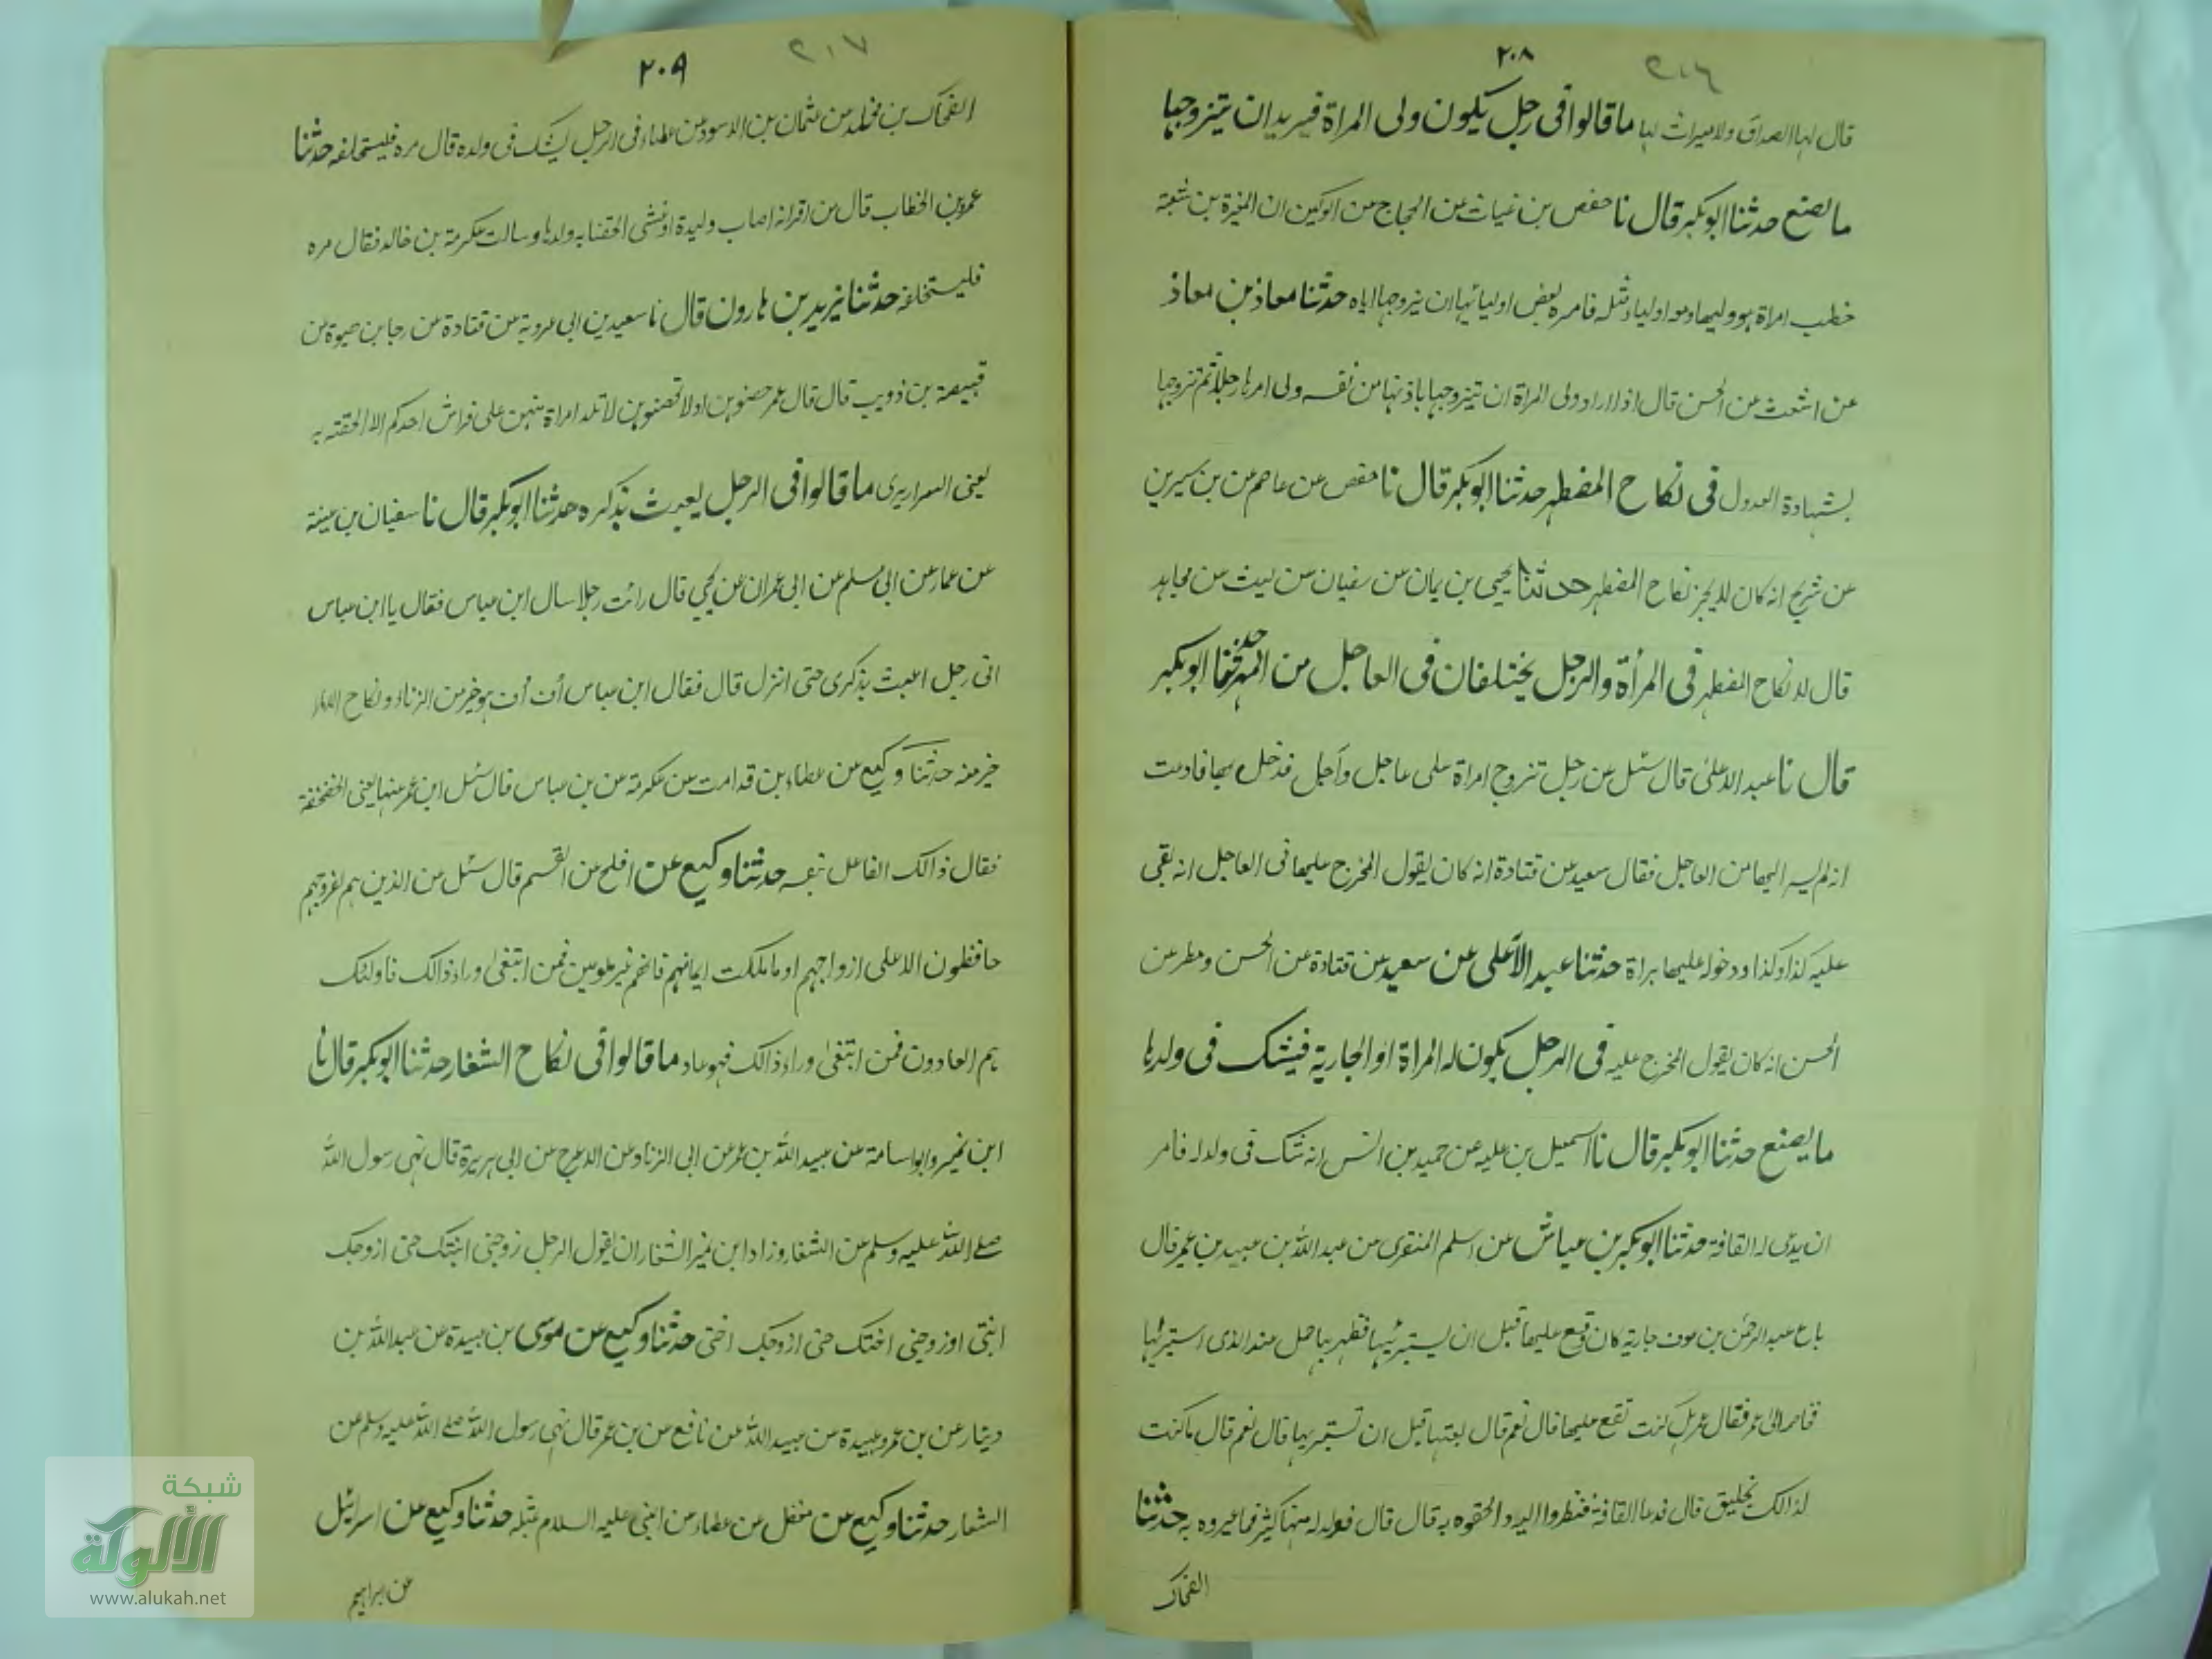 ٢٠٨
٢١٦
قال لها الصداق ولا ميراث لها ما قالوا فى رجل يكون ولى المراة فيريد ان يتزوجها
ما يصنع حدثنا ابو بكر قال نا حفص بن غياث عن الحجاج عن الركين ان المغيرة بن شعبة
خطب امراة هو وليها ومعه اولياء مثله فامر بعض اوليائها ان يزوجها اياه حدثنا معاذ بن معاذ
عن اشعث عن الحسن قال اذا اراد ولى المراة ان يتزوجها باذنها من نفسه ولى امرها رجلا ثم تزوجها
بشهادة العدول فى نكاح المضطهد حدثنا ابو بكر قال نا حفص عن عاصم عن بن سيرين
عن شريح انه كان لا يجيز نكاح المضطهد حدثنا يحيى بن يمان عن سفيان عن ليث عن مجاهد
قال لا نكاح المضطهد فى المرأة والرجل يختلفان فى العاجل من المهر حدثنا ابو بكر
قال نا عبد الاعلى قال سئل عن رجل تزوج امراة على عاجل وآجل فدخل بها فادعت
انه لم يسر اليها من العاجل فقال سعيد عن قتادة انه كان يقول المخرج عليها فى العاجل انه بقى
عليه كذا وكذا ودخوله عليها براة حدثنا عبد الأعلى عن سعيد عن قتادة عن الحسن ومطر عن
الحسن انه كان يقول المخرج عليه فى الرجل يكون له المراة او الجارية فيشك فى ولدها
ما يصنع حدثنا ابو بكر قال نا اسمعيل بن علية عن حميد عن انس انه شك فى ولد له فامر
ان يدعى له القافة حدثنا ابو بكر بن عياش عن اسلم المنقرى عن عبد الله بن عبيد بن عمير قال
باع عبد الرحمن بن عوف جارية كان وقع عليها قبل ان يستبرئها فظهر بها حمل عند الذى اشتراها
فخاصم الى عمر فقال عمر هل كنت تقع عليها قال نعم قال بعتها قبل ان تستبريها قال نعم قال ما كنت
لذالك بخليق قال فدعا القافة فنظروا اليه والحقوه به قال قال فولد له منها كثير فما عيروه به حدثنا
الضحاك
٢٠٩
٢١٧
الضحاك بن مخلد عن عثمان بن الاسود عن عطاء فى الرجل يشك فى ولده قال مره فليستلحقه حدثنا
عمر بن الخطاب قال من اقر انه اصاب وليدة او غشى الحقنا به ولدها وسالت عكرمة بن خالد فقال مره
فليستحلفه حدثنا يزيد بن هارون قال نا سعيد بن ابى عروبة عن قتادة عن رجا بن حيوة عن
قبيصة بن ذويب قال قال عمر حصنوهن او لا تحصنوهن لا تلد امراة منهن على فراش احدكم الا الحقته به
يعنى السرارى ما قالوا فى الرجل يعبث بذكره حدثنا ابو بكر قال نا سفيان بن عيينة
عن عمار عن ابى مسلم عن ابى عمران عن يحيى قال رائت رجلا سال ابن عباس فقال يا ابن عباس
انى رجل اعبث بذكرى حتى انزل قال فقال ابن عباس أف أف هو خير من الزناء ونكاح الاماء
خير منه حدثنا وكيع عن عطاء بن قدامت عن عكرمة عن بن عباس قال سئل ابن عمر عنها يعنى الخضخضة
فقال ذالك الفاعل بنفسه حدثنا وكيع عن افلح عن القسم قال سئل عن الذين هم لفروجهم
حافظون الا على ازواجهم او ما ملكت ايمانهم فانهم غير ملومين فمن ابتغى وراء ذالك فاولئك
هم العادون فمن ابتغى وراء ذالك فهو عاد ما قالوا فى نكاح الشغار حدثنا ابو بكر قال نا
ابن نمير وابو اسامة عن عبيد الله بن عمر عن ابى الزناد عن الاعرج عن ابى هريرة قال نهى رسول الله
صلے الله عليه وسلم عن الشغار وزاد ابن نمير الشغار ان يقول الرجل زوجنى ابنتك حتى ازوجك
ابنتى او زوجنى اختك حتى ازوجك اختى حدثنا وكيع عن موسى بن عبيدة عن عبد الله بن
دينار عن بن عمر وعبيدة عن عبيد الله عن نافع عن بن عمر قال نهى رسول الله صلے الله عليه وسلم عن
الشغار حدثنا وكيع عن معقل عن عطاء عن النبى عليه السلام مثله حدثنا وكيع عن اسرائيل
عن ابراهيم
شبكة
الألوكة
www.alukah.net